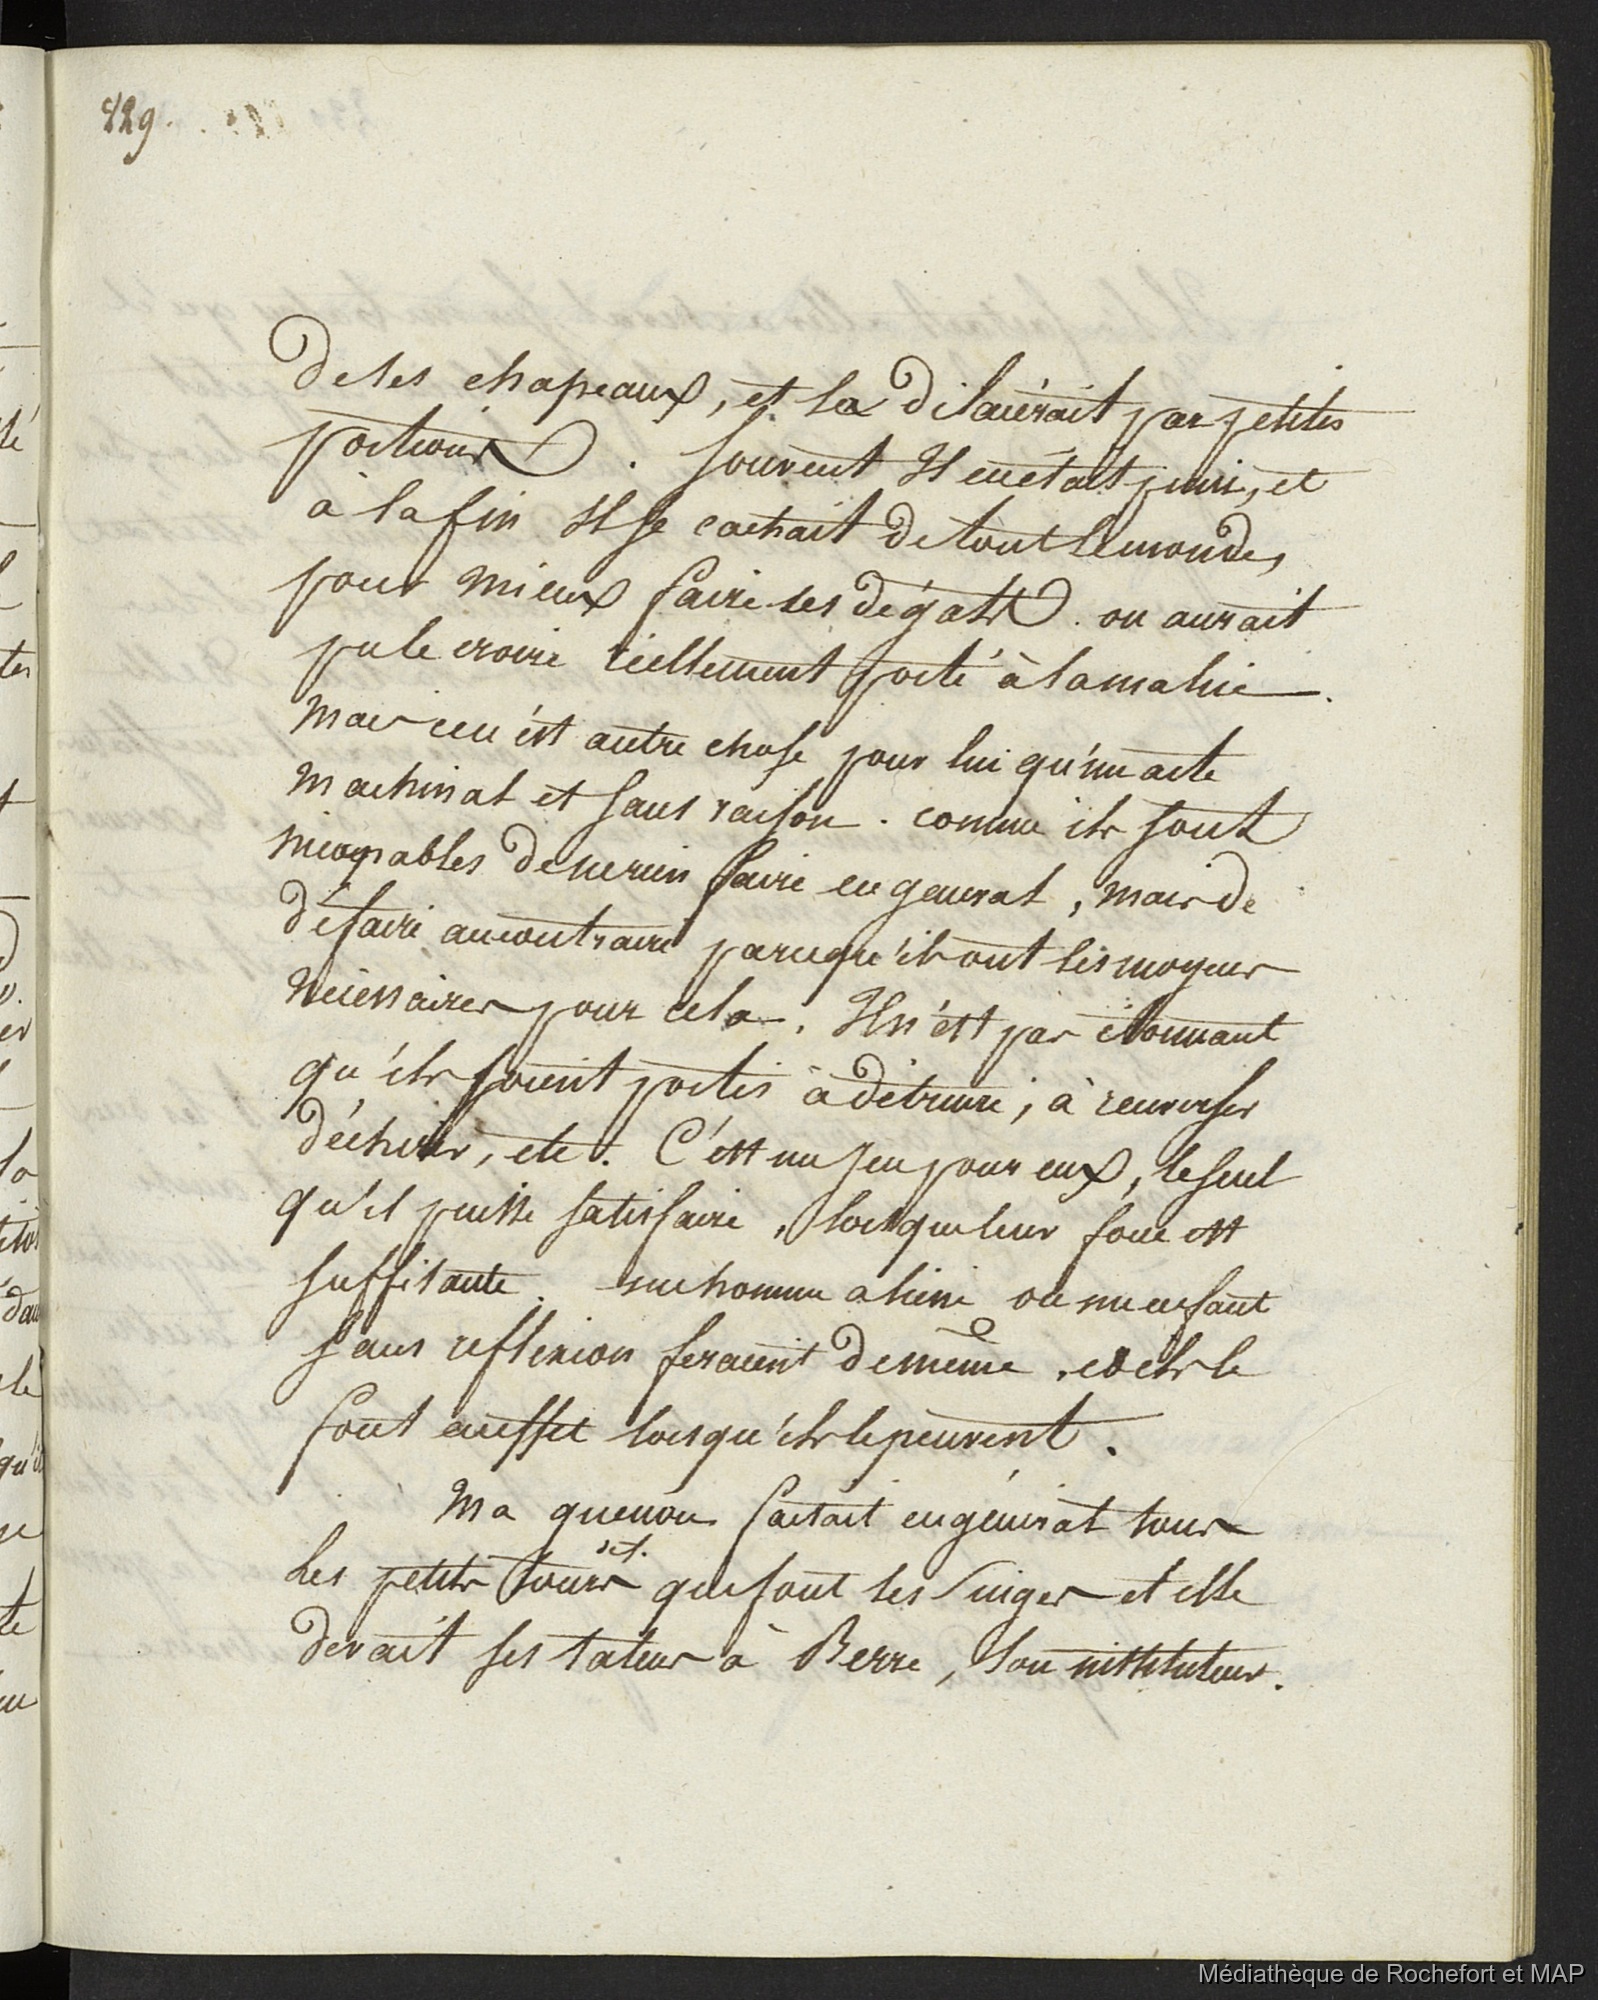 829.
De ses chapeaux, et la dilacérait par petites
portions. souvent Il en était puni, et
à la fin Il se cachait de tout le monde,
pour mieux faire ses dégats. on aurait
pu le croire réellement porté à la malice.
Mais ce n'est autre chose pour lui qu'un acte
machinal et sans raison. comme ils sont
incapables de ne rien faire en général, mais de
défaire au contraire parce qu'ils ont les moyens
nécessaires pour cela. Il n'est pas étonnant
qu'ils soient portés à détruire, à renverser
déchirer, etc. C'est un jeu pour eux, le seul
qu'il puisse satisfaire, lorsque leur force est
suffisante. un homme aliéné ou un enfant
sans reflexion feraient de même, et ils le
font en effet lorsqu'ils le peuvent.
Ma guenon faisait en général tous
les petits tours que font les Singes et elle
devait ses talens à Berre, son instituteur.
Médiathèque de Rochefort et MAP